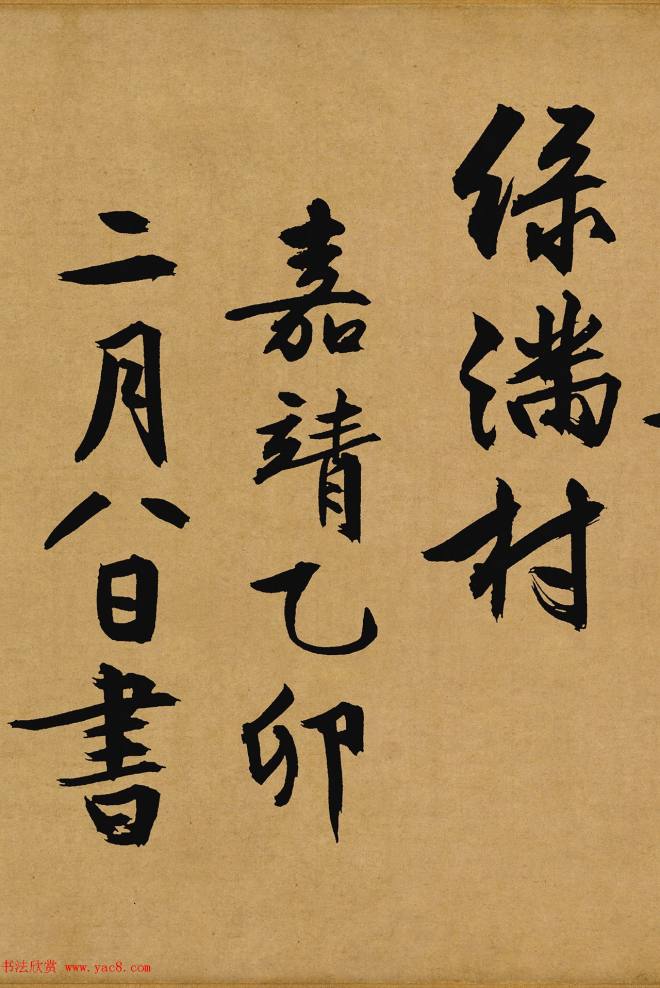 绿满村
嘉靖乙卯
二月八日書
书法欣赏 www.yac8.com